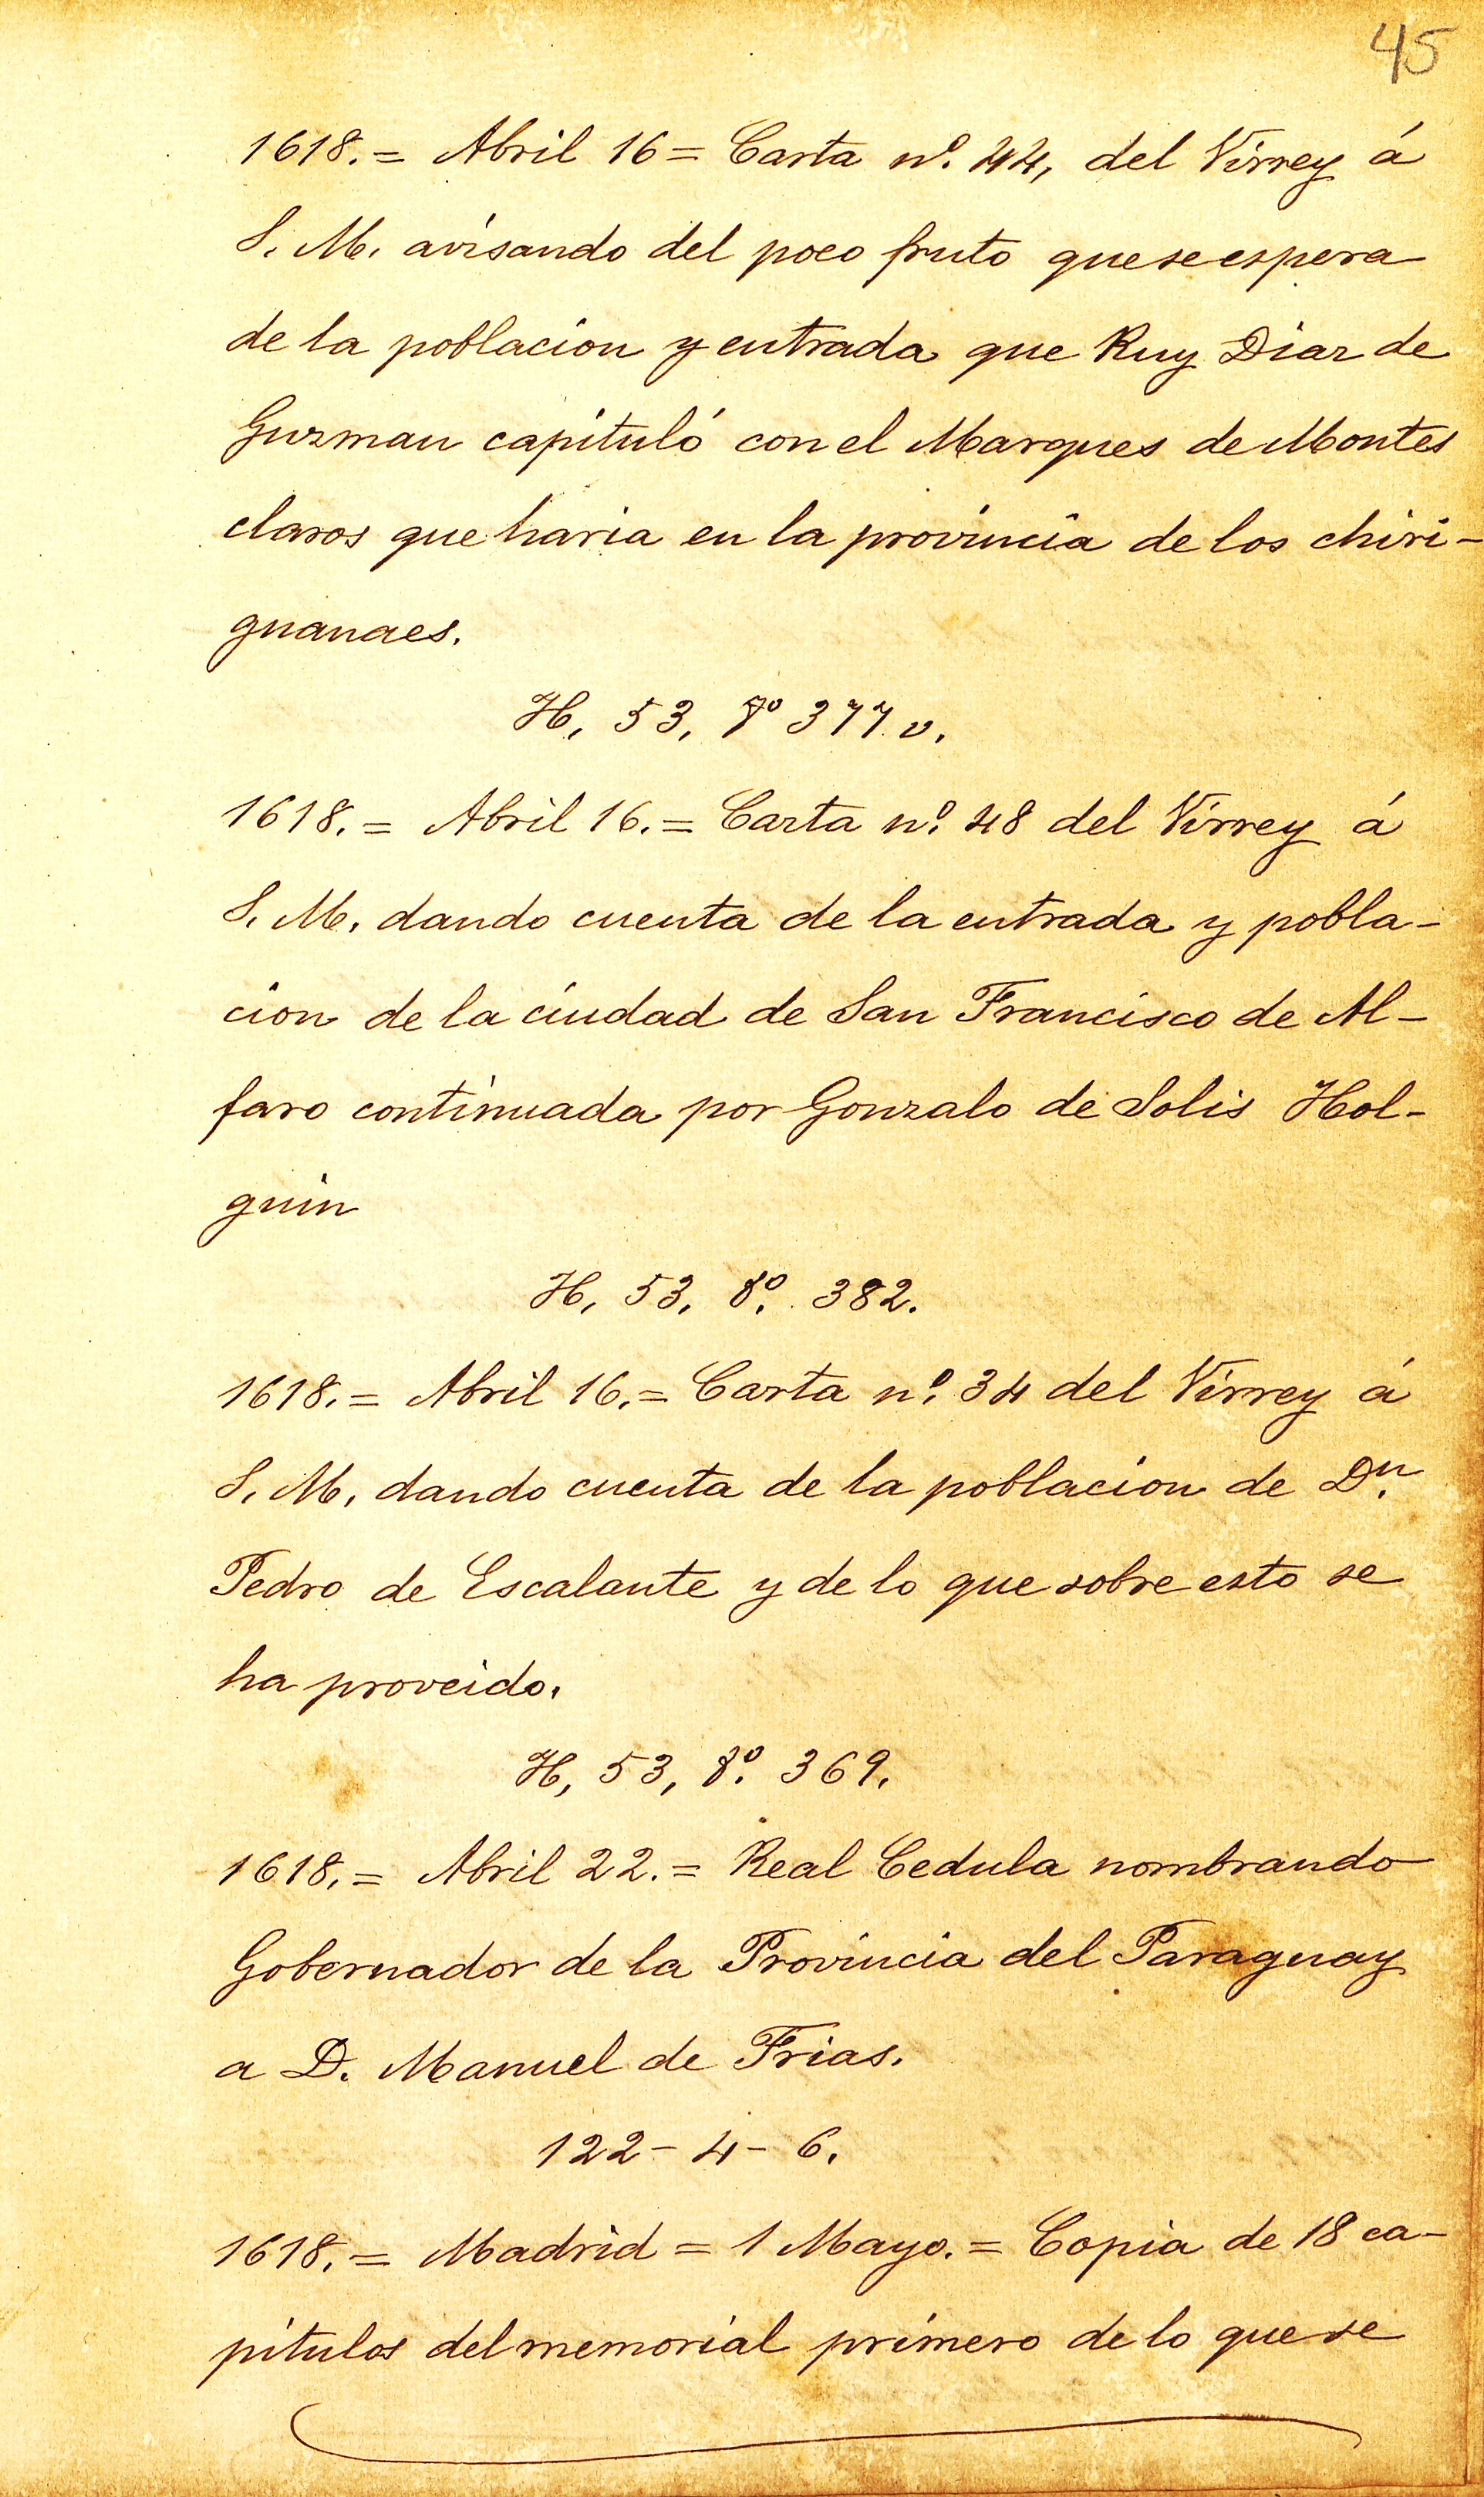 45
1618.= Abril 16= Carta nº. 44, del Virrey á
S. M. avisando del poco fruto que se espera
de la poblacion y entrada que Ruy Diaz de
Guzman capituló con el Marques de Montes
claros que haria en la provincia de los chiri-
guanaes.
H, 53, fº 377 v.
1618.= Abril 16.= Carta nº. 48 del Virrey á
S. M. dando cuenta de la entrada y pobla-
cion de la ciudad de San Francisco de Al-
faro continuada por Gonzalo de Solis Hol-
guin
H, 53, fº. 382.
1618.= Abril 16.= Carta nº. 34 del Virrey á
S. M. dando cuenta de la poblacion de Dn.
Pedro de Escalante y de lo que sobre esto se
ha proveido.
H, 53, fº. 369.
1618.= Abril 22.= Real Cedula nombrando
Gobernador de la Provincia del Paraguay
a D. Manuel de Frias.
122-4-6.
1618.= Madrid = 1 Mayo.= Copia de 18 ca-
pitulos del memorial primero de lo que se